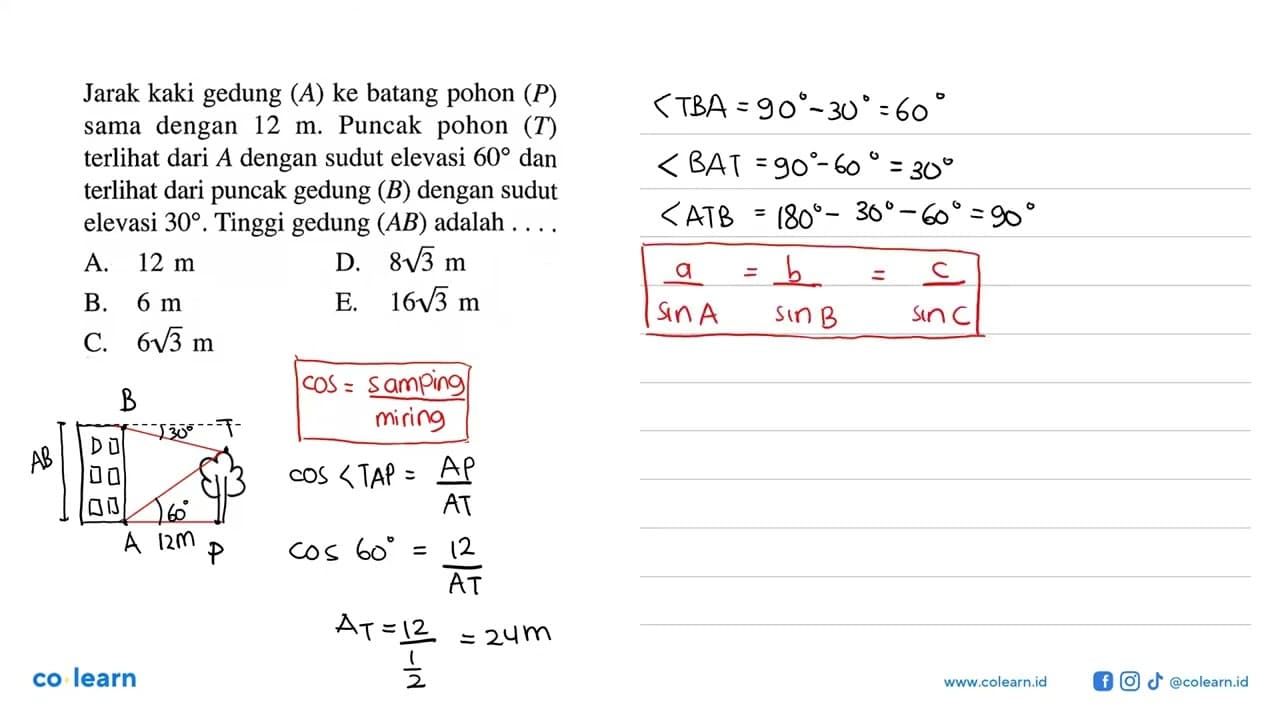 Jarak kaki gedung (A) ke batang pohon (P)
sama dengan 12 m. Puncak pohon (T)
terlihat dari A dengan sudut elevasi 60° dan
terlihat dari puncak gedung (B) dengan sudut
elevasi 30°. Tinggi gedung (AB) adalah . . . .
A. 12 m
B. 6 m
C. 6√3 m
D. 8√3 m
E. 16√3 m
B
30°
T
AB
60°
A 12m P
cos = samping / miring
cos <TAP = AP / AT
cos 60° = 12 / AT
AT = 12 / 1/2 = 24m
<TBA = 90° - 30° = 60°
<BAT = 90° - 60° = 30°
<ATB = 180° - 30° - 60° = 90°
a / sin A = b / sin B = c / sin C
co learn
www.colearn.id
@colearn.id